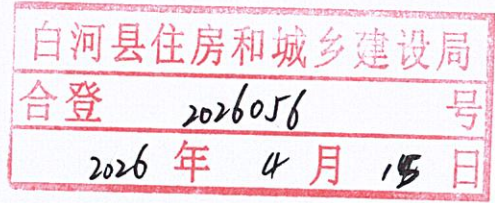 白河县住房和城乡建设局
合登 2026056 号
2026 年 4 月 15 日